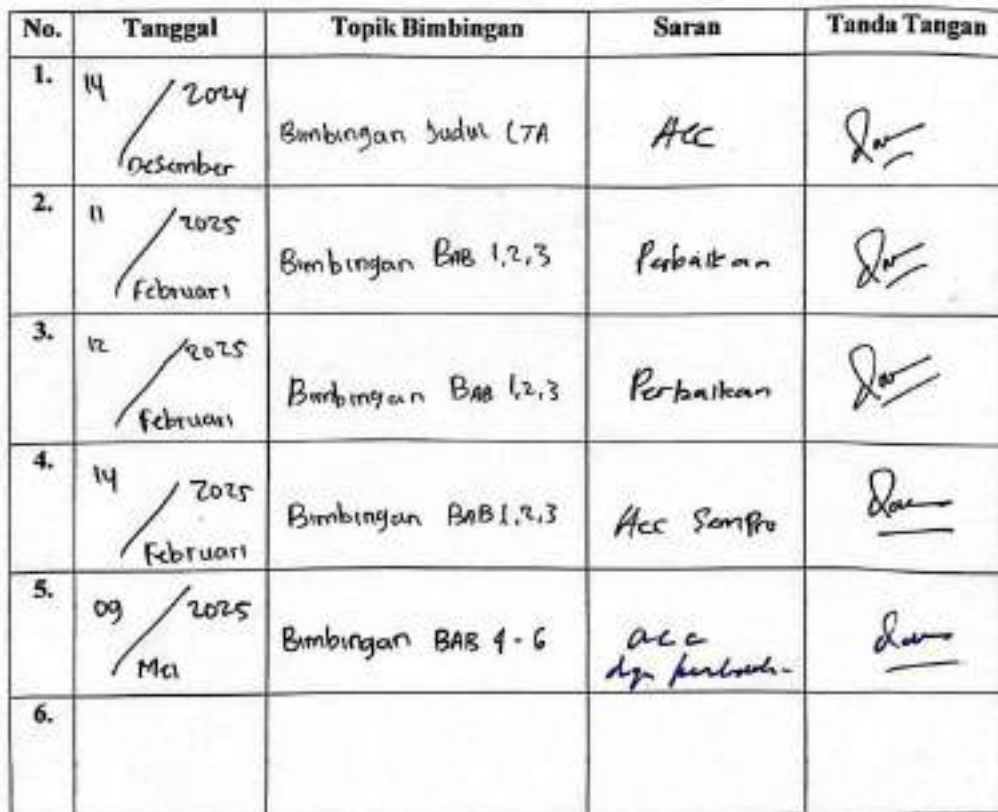 No. Tanggal Topik Bimbingan Saran Tanda Tangan
1. 14 / 2024 Desember Bimbingan Judul LTA Acc
2. 11 / 2025 Februari Bimbingan BAB 1,2,3 Perbaikan
3. 12 / 2025 Februari Bimbingan BAB 1,2,3 Perbaikan
4. 14 / 2025 Februari Bimbingan BAB 1,2,3 Acc Sempro
5. 09 / 2025 Mei Bimbingan BAB 4 - 6 acc
dgn
6.